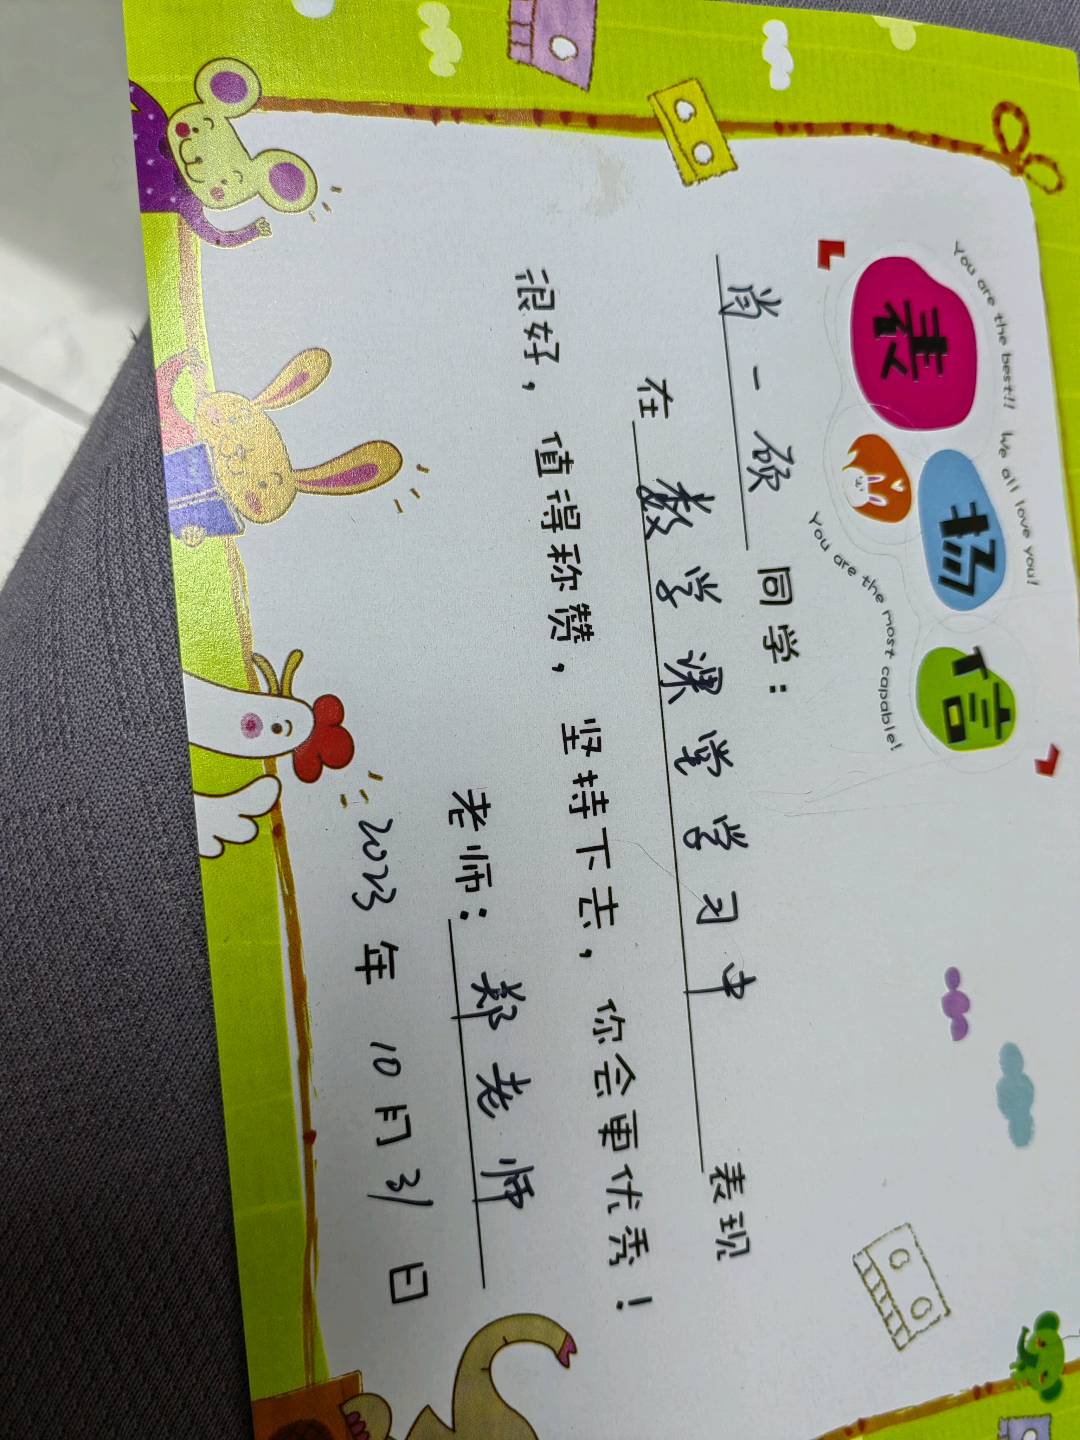 You are the best!! We all love you!
表扬信
You are the most capable!
肖一硕 同学：
在 数学课堂学习中 表现
很好，值得称赞，坚持下去，你会更优秀！
老师：郑老师
2023年10月31日